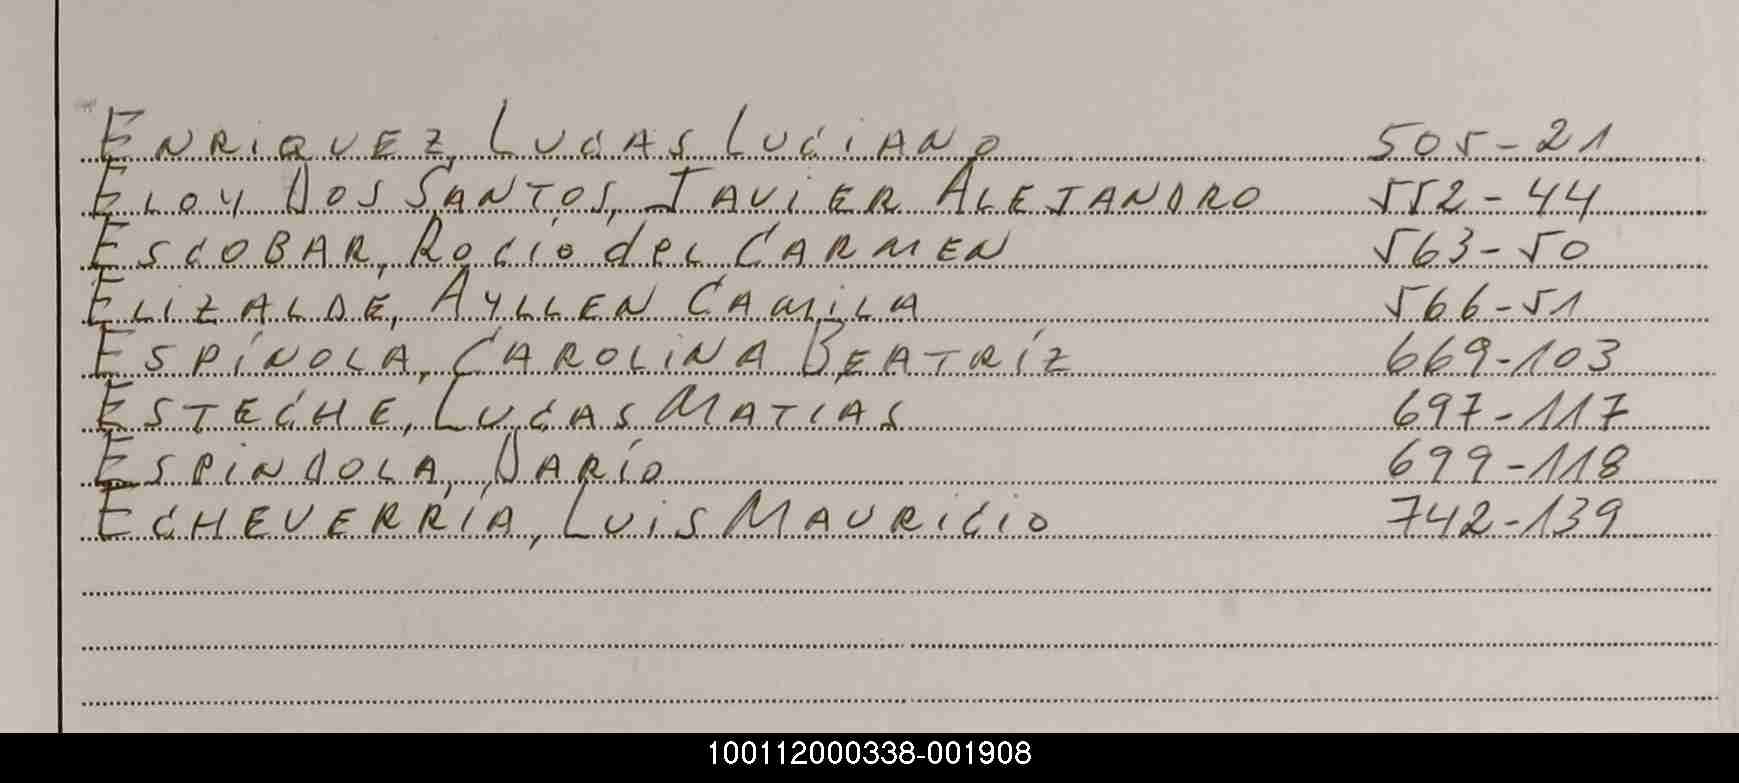 ENRIQUEZ, LUCAS LUCIANO 505-21
ELOY DOS SANTOS, JAVIER ALEJANDRO 552-44
ESCOBAR, ROCÍO del CARMEN 563-50
ELIZALDE, AYLLEN CAMILA 566-51
ESPÍNOLA, CAROLINA BEATRÍZ 669-103
ESTECHE, LUCAS MATIAS 697-117
ESPINDOLA, DARÍO 699-118
ECHEVERRÍA, LUIS MAURICIO 742-139
100112000338-001908